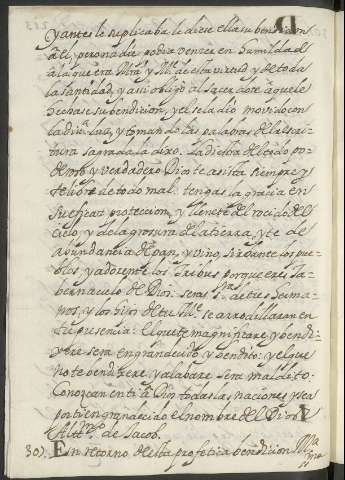 y antes le suplicaba le diese ella su bendicion
a el; pero nadie podia vencer en humildad
a la que era Mtra. y Me. de esta virtud y de toda
la santidad, y assi obligò al Sacerdote a que le
hechase su bendicion, y el se la dio movido con
la diva. luz, y tomando las palabras de la escri-
tura sagrada la dixo: La diestra del todo po-
deroso y verdadero Dios te asista siempre y
te libre de todo mal: tengas la gracia en
su eficaz proteccion, y llenete del rocio del
cielo, y de la grosura de la tierra, y te de
abundancia de pan, y vino, sirvante los pue-
blos, y adorente los Tribus porque eres Ta-
bernaculo de Dios: seras Sra. de tus herma-
nos, y los hijos de tu Me. se arrodillaran en
tu presencia: El que te magnificare, y bendi-
xere sera engrandecido y bendito: y el que
no te bendixere, y alabare sera maldito:
Conozcan en ti a Dios todas las naciones y sea
por ti engrandecido el nombre del Dios
Altmo. de Jacob.
307. En retorno de esta profetica bendicion